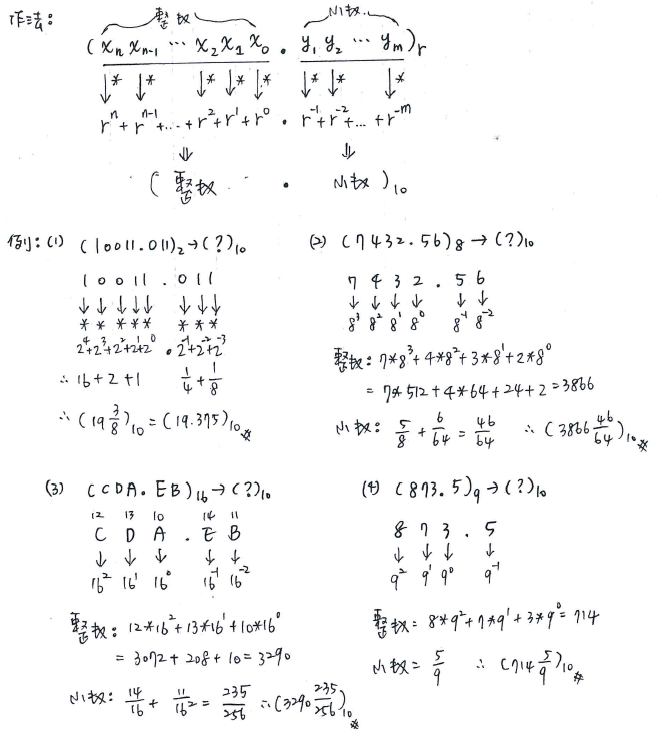 作法：
整数 小数
( x_n x_{n-1} … x_2 x_1 x_0 . y_1 y_2 … y_m )_r
↓* ↓* ↓* ↓* ↓* ↓* ↓* ↓*
r^n + r^{n-1} + … + r^2 + r^1 + r^0 . r^{-1} + r^{-2} + … + r^{-m}
⇓ ⇓
( 整数 . 小数 )_10
例：(1) (10011.011)_2 → (?)_10
1 0 0 1 1 . 0 1 1
↓ ↓ ↓ ↓ ↓ ↓ ↓ ↓
* * * * * * * *
2^4+2^3+2^2+2^1+2^0 . 2^{-1}+2^{-2}+2^{-3}
∴ 16+2+1 1/4 + 1/8
∴ (19 3/8)_10 = (19.375)_10 ※
(2) (7432.56)_8 → (?)_10
7 4 3 2 . 5 6
↓ ↓ ↓ ↓ ↓ ↓
8^3 8^2 8^1 8^0 8^{-1} 8^{-2}
整数：7*8^3+4*8^2+3*8^1+2*8^0
= 7*512+4*64+24+2=3866
小数：5/8 + 6/64 = 46/64 ∴ (3866 46/64)_10 ※
(3) (CDA.EB)_16 → (?)_10
12 13 10 14 11
C D A . E B
↓ ↓ ↓ ↓ ↓
16^2 16^1 16^0 16^{-1} 16^{-2}
整数：12*16^2+13*16^1+10*16^0
= 3072+208+10=3290
小数：14/16 + 11/16^2 = 235/256 ∴ (3290 235/256)_10 ※
(4) (873.5)_9 → (?)_10
8 7 3 . 5
↓ ↓ ↓ ↓
9^2 9^1 9^0 9^{-1}
整数= 8*9^2+7*9^1+3*9^0= 714
小数= 5/9 ∴ (714 5/9)_10 ※